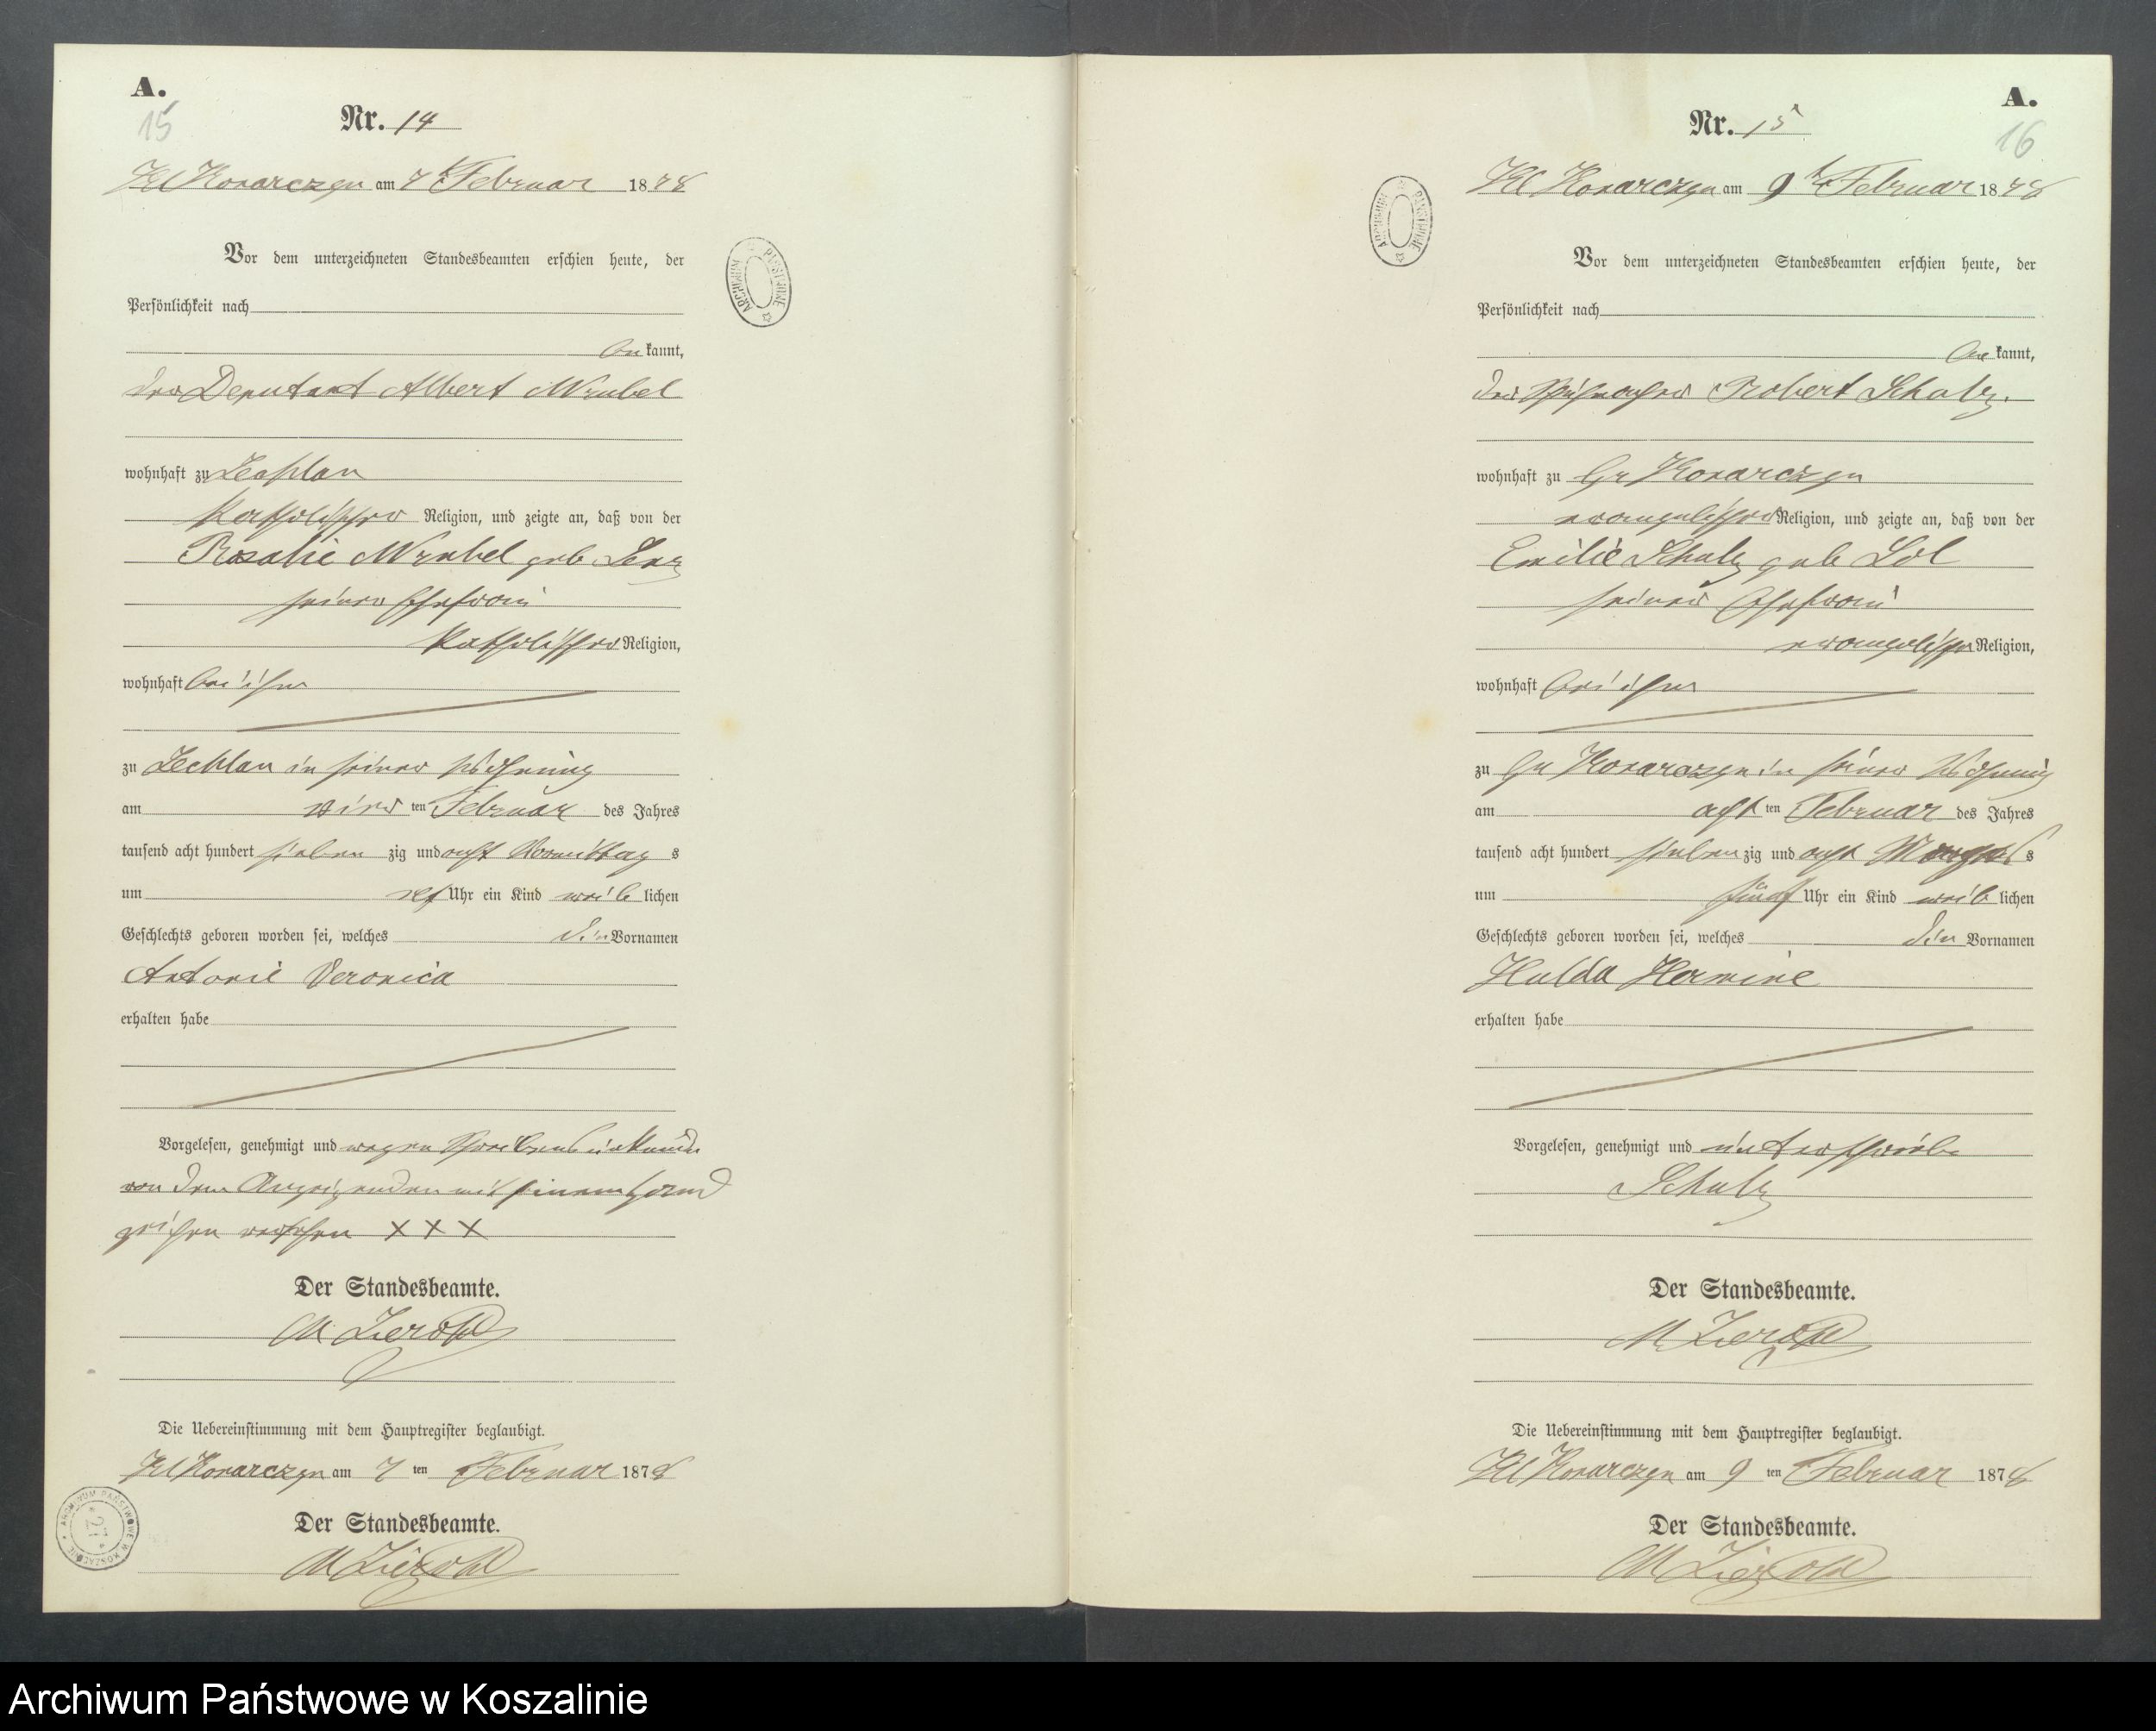 A.
15
Nr. 14
Kl Konarczyn am 7 t Februar 1878
Vor dem unterzeichneten Standesbeamten erschien heute, der
Persönlichkeit nach
be kannt,
der Deputant Albert Wrubel
wohnhaft zu
katholischer Religion, und zeigte an, daß von der
Rosalie Wrubel geb
seiner Ehefrau
katholischer Religion,
wohnhaft bei ihm
zu in seiner Wohnung
am vier ten Februar des Jahres
tausend acht hundert sieben zig und acht Vormittag s
um Uhr ein Kind weib lichen
Geschlechts geboren worden sei, welches den Vornamen
Antonie Veronica
erhalten habe
Vorgelesen, genehmigt und wegen Schreibensunkunde
von dem Anzeigenden mit seinem Hand
zeichen versehen XXX
Der Standesbeamte.
M
Die Uebereinstimmung mit dem Hauptregister beglaubigt.
Kl Konarczyn am 7 ten Februar 1878
Der Standesbeamte.
M
ARCHIWUM PAŃSTWOWE
ARCHIWUM PAŃSTWOWE W KOSZALINIE
27
A.
16
Nr. 15
Kl Konarczyn am 9 t Februar 1878
Vor dem unterzeichneten Standesbeamten erschien heute, der
Persönlichkeit nach
be kannt,
der Robert Schulz.
wohnhaft zu Gr Konarczyn
evangelischer Religion, und zeigte an, daß von der
Emilie Schulz geb
seiner Ehefrau
evangelischer Religion,
wohnhaft bei ihm
zu Gr Konarczyn in seiner Wohnung
am acht ten Februar des Jahres
tausend acht hundert sieben zig und acht Morgens s
um fünf Uhr ein Kind weib lichen
Geschlechts geboren worden sei, welches den Vornamen
Hulda Hermine
erhalten habe
Vorgelesen, genehmigt und unterschrieben
Schulz
Der Standesbeamte.
M
Die Uebereinstimmung mit dem Hauptregister beglaubigt.
Kl Konarczyn am 9 ten Februar 1878
Der Standesbeamte.
M
ARCHIWUM PAŃSTWOWE
Archiwum Państwowe w Koszalinie